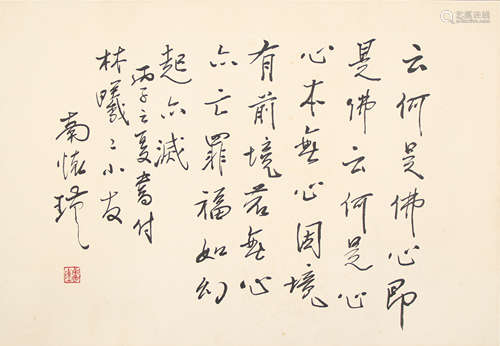 云何是佛心即
是佛云何是心
心本無心因境
有前境若無心
亦亡罪福如幻
起亦滅
丙子之夏書付
林曦曦小友
南懷瑾